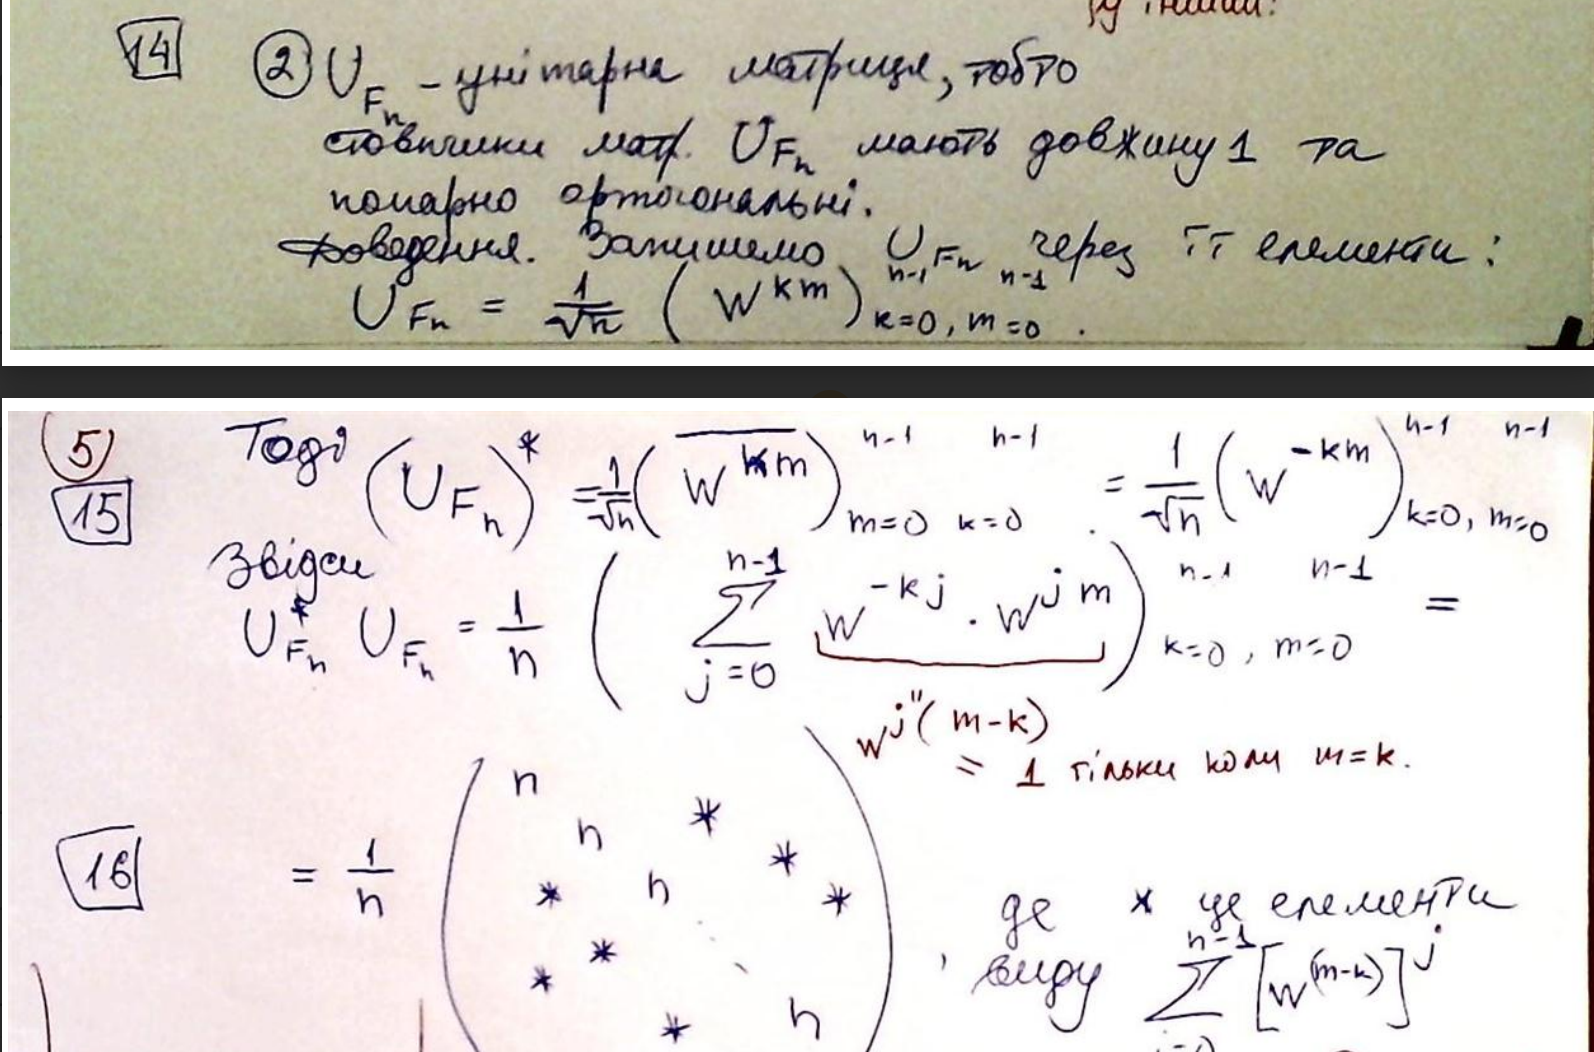 14 ② U_{F_n} – унітарна матриця, тобто
стовпчики матр. U_{F_n} мають довжину 1 та
попарно ортогональні.
Доведення. Запишемо U_{F_n} через її елементи:
U_{F_n} = \frac{1}{\sqrt{n}} ( W^{km} )_{k=0, m=0}^{n-1 n-1} .
5 Тоді (U_{F_n})^* = \frac{1}{\sqrt{n}} ( \overline{W^{km}} )_{m=0 k=0}^{n-1 n-1} = \frac{1}{\sqrt{n}} ( W^{-km} )_{k=0, m=0}^{n-1 n-1}
15
Звідси
U_{F_n}^* U_{F_n} = \frac{1}{n} ( \sum_{j=0}^{n-1} W^{-kj} · W^{jm} )_{k=0, m=0}^{n-1 n-1} =
"
W^{j(m-k)}
= 1 тільки коли m=k.
16 = \frac{1}{n} ( n
n *
*
* n *
*
*
* n ) , де * це елементи
виду \sum_{j=0}^{n-1} [W^{(m-k)}]^j